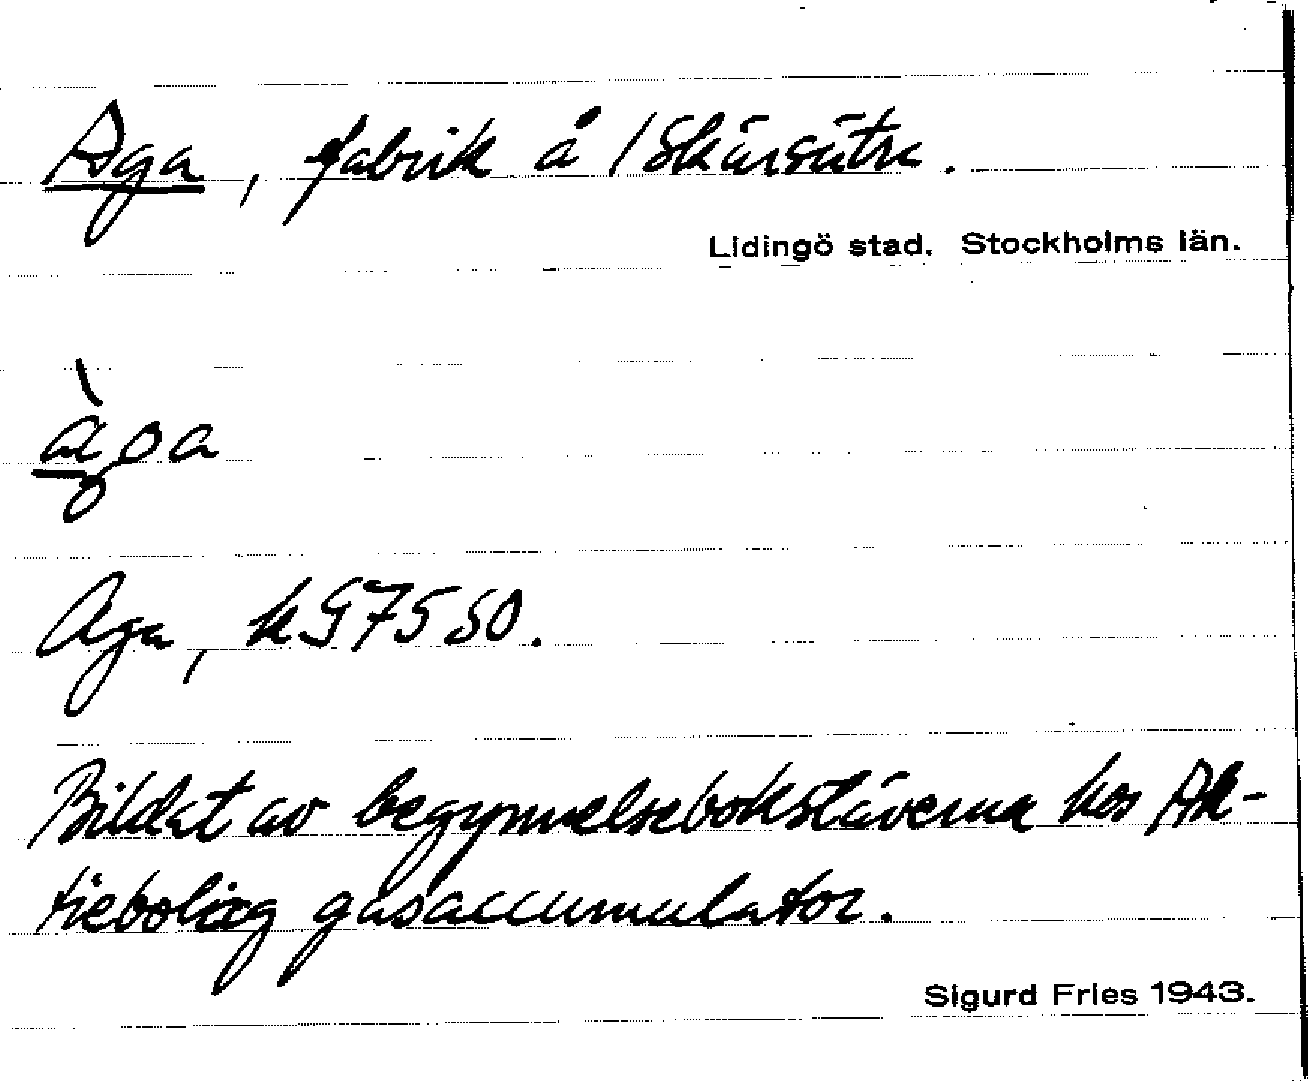 Aga, fabrik å /Skärsätra.
Lidingö stad. Stockholms län.
àga
Aga, k G7550.
Bildat av begynnelsebokstäverna hos Ak-
tiebolag gasaccumulator.
Sigurd Fries 1943.